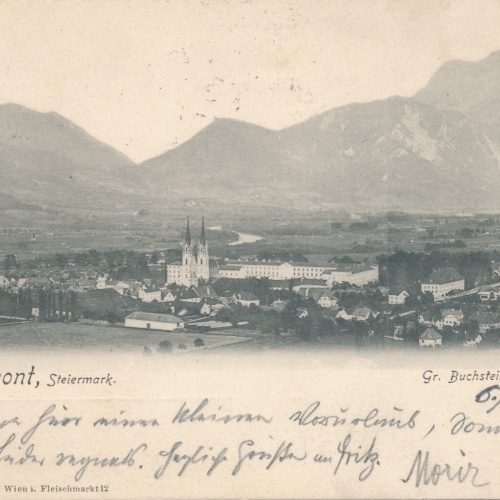 ont, Steiermark.
Gr. Buchstei
6.
hier einen kleinen Vorurlaub,
leider regnets. Herzliche Grüße an Fritz.
Moriz
Wien i. Fleischmarkt 12